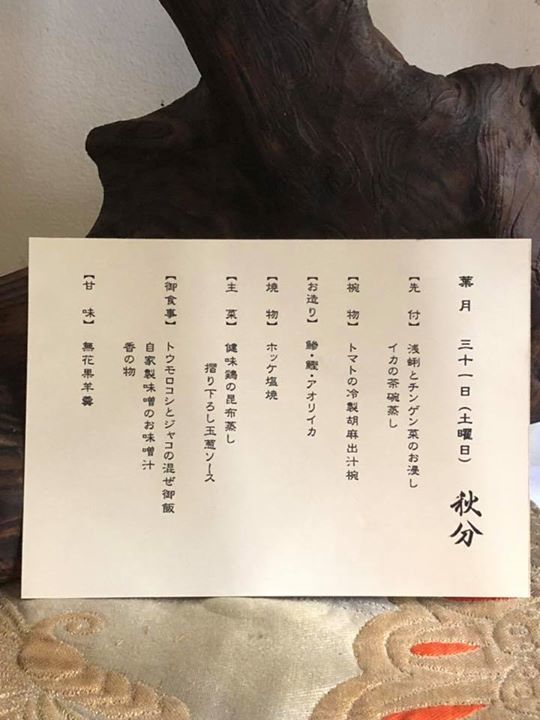 葉月 三十一日(土曜日) 秋分
【先付】 浅蜊とチンゲン菜のお浸し
イカの茶碗蒸し
【椀物】 トマトの冷製胡麻出汁椀
【お造り】 鯵・鰹・アオリイカ
【焼物】 ホッケ塩焼
【主菜】 健味鶏の昆布蒸し
摺り下ろし玉葱ソース
【御食事】 トウモロコシとジャコの混ぜ御飯
自家製味噌のお味噌汁
香の物
【甘味】 無花果羊羹